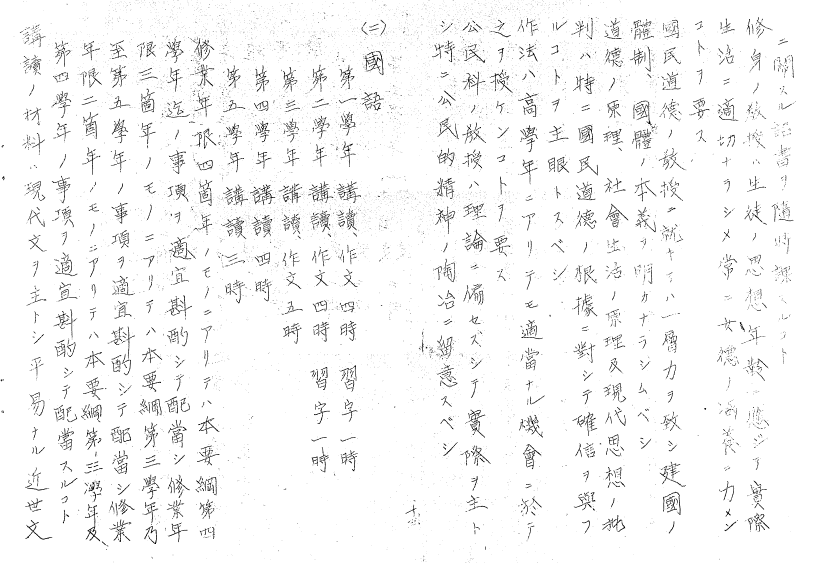 ニ關スル詔書ヲ隨時課スルコト
修身ノ敎授ハ生徒ノ思想年齡ニ應ジテ實際
生活ニ適切ナラシメ常ニ女德ノ涵養ニ力メン
コトヲ要ス
國民道德ノ敎授ニ就キテハ一層力ヲ致シ建國ノ
體制、國體ノ本義ヲ明カナラシムベシ
道德ノ原理、社會生活ノ原理及現代思想ノ批
判ハ特ニ國民道德ノ根據ニ對シテ確信ヲ與フ
ルコトヲ主眼トスベシ
作法ハ高學年ニアリテモ適當ナル機會ニ於テ
之ヲ授ケンコトヲ要ス
公民科ノ敎授ハ理論ニ偏セズシテ實際ヲ主ト
シ特ニ公民的精神ノ陶冶ニ留意スベシ
十
(二)國語
第一學年 講讀、作文四時 習字一時
第二學年 講讀、作文四時 習字一時
第三學年 講讀、作文五時
第四學年 講讀、四時
第五學年 講讀、三時
修業年限四箇年ノモノニアリテハ本要綱第四
學年迄ノ事項ヲ適宜斟酌シテ配當シ修業年
限三箇年ノモノニアリテハ本要綱第三學年乃
至第五學年ノ事項ヲ適宜斟酌シテ配當シ修業
年限二箇年ノモノニアリテハ本要綱第三學年及
第四學年ノ事項ヲ適宜斟酌シテ配當スルコト
講讀ノ材料ハ現代文ヲ主トシ平易ナル近世文